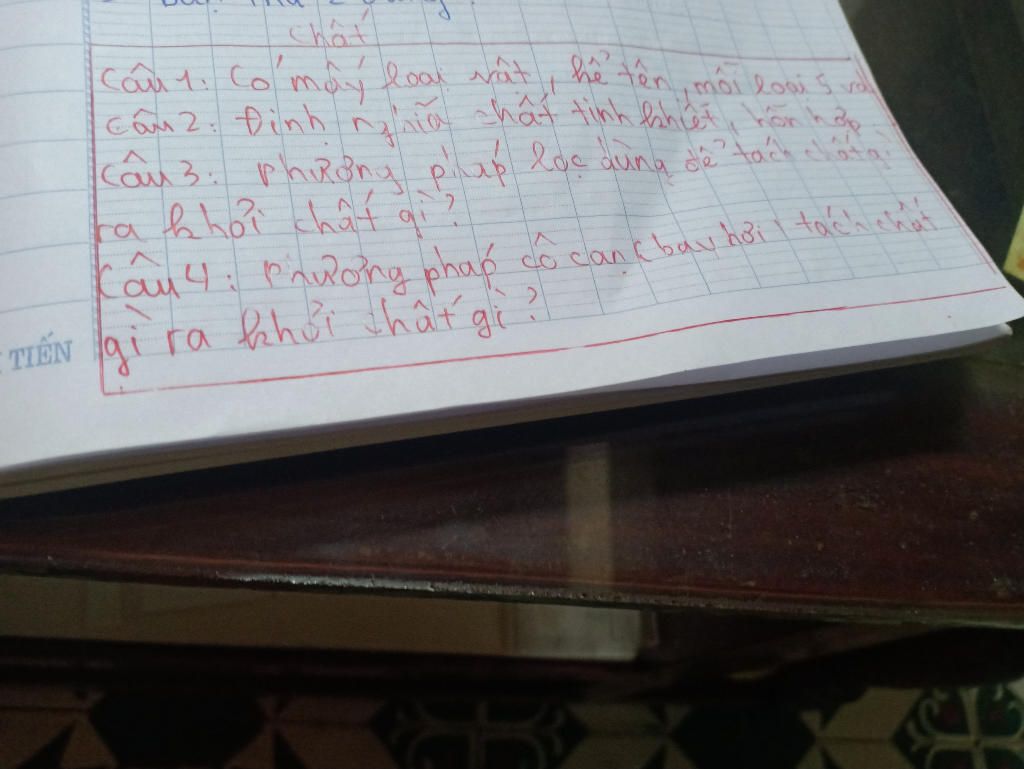 Chất
Câu 1: Có mấy loại vật, kể tên, mỗi loại 5 vd
Câu 2: Định nghĩa chất tinh khiết, hỗn hợp
Câu 3: Phương pháp lọc dùng để tách chất gì
ra khỏi chất gì?
Câu 4: Phương pháp cô cạn (bay hơi) tách chất
gì ra khỏi chất gì?
TIẾN